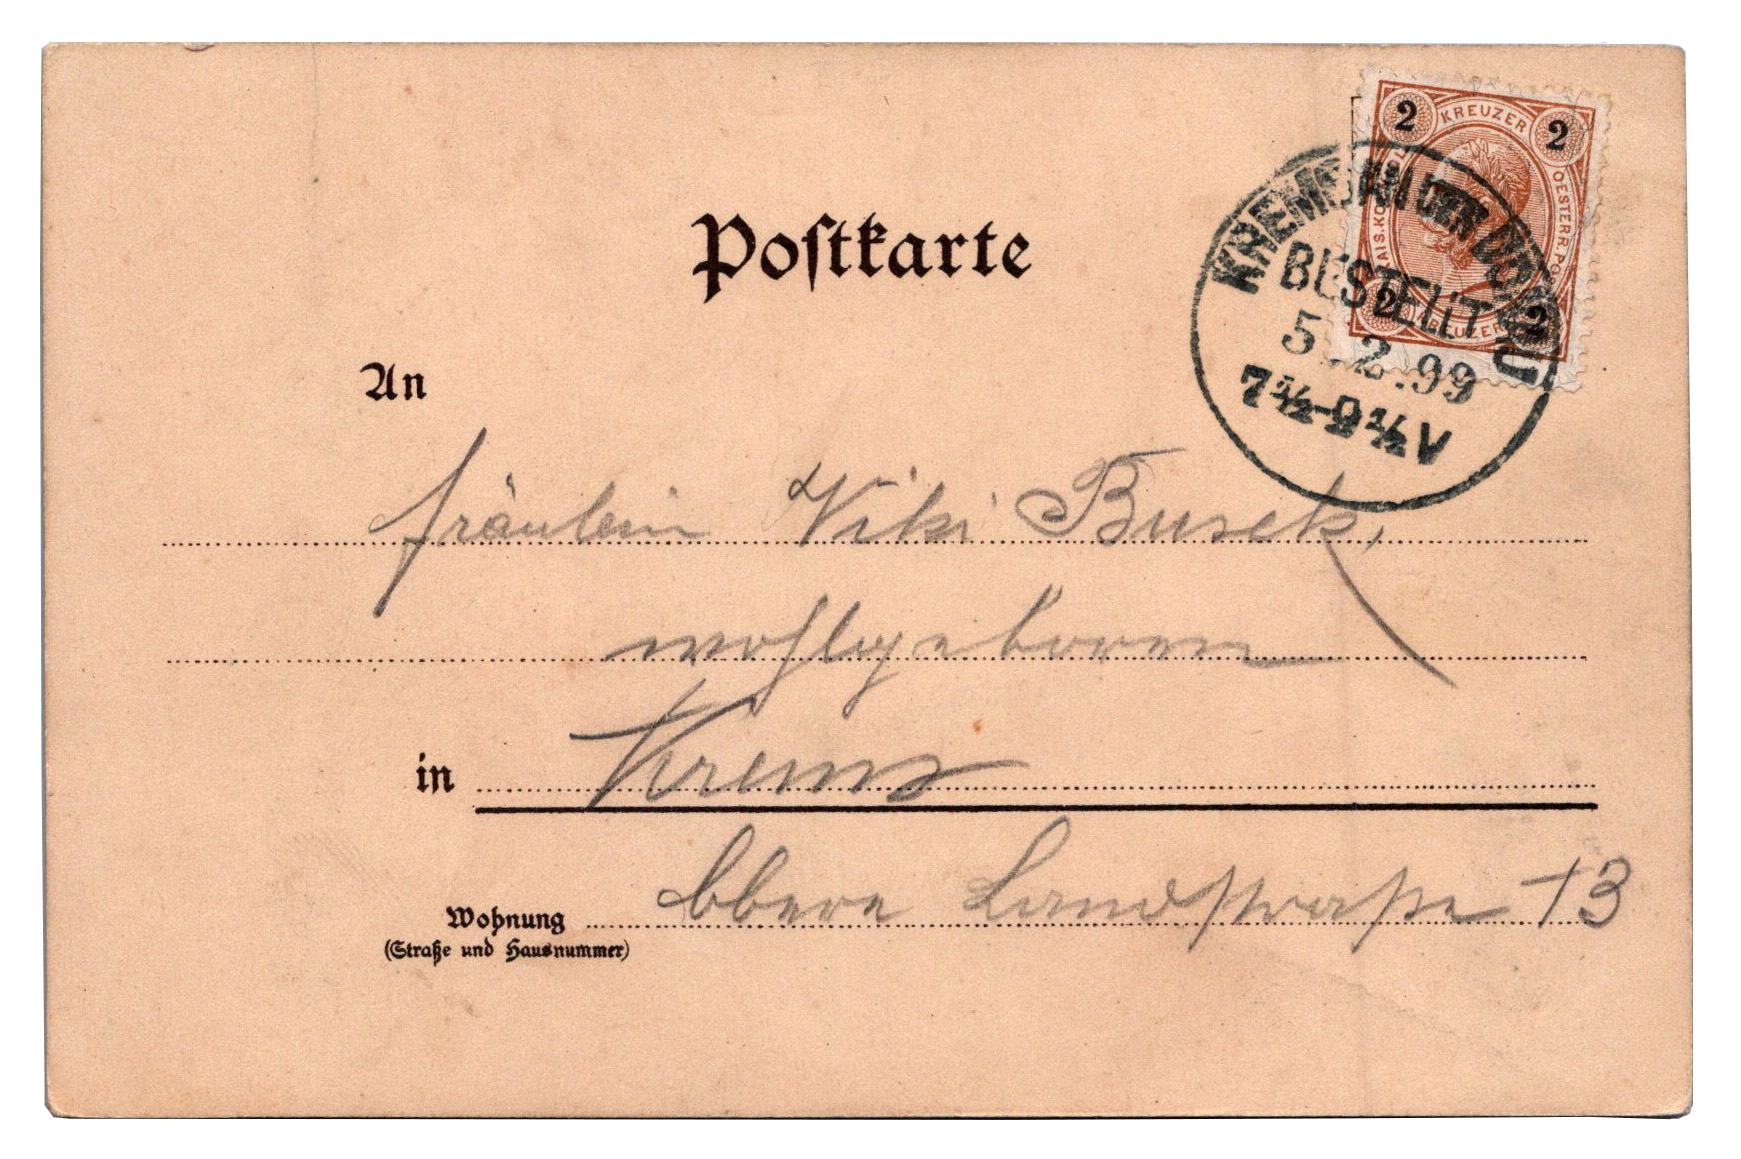 2 KREUZER 2
KAIS. KOENIGL. OESTERR. POST
2 KREUZER 2
KREMS AN DER DONAU
BESTELLT
5.2.99
7½-9½V
Postkarte
An
Fräulein Viki Busek,
wohlgeboren
in Krems
Wohnung Obere Landstraße 13
(Straße und Hausnummer)